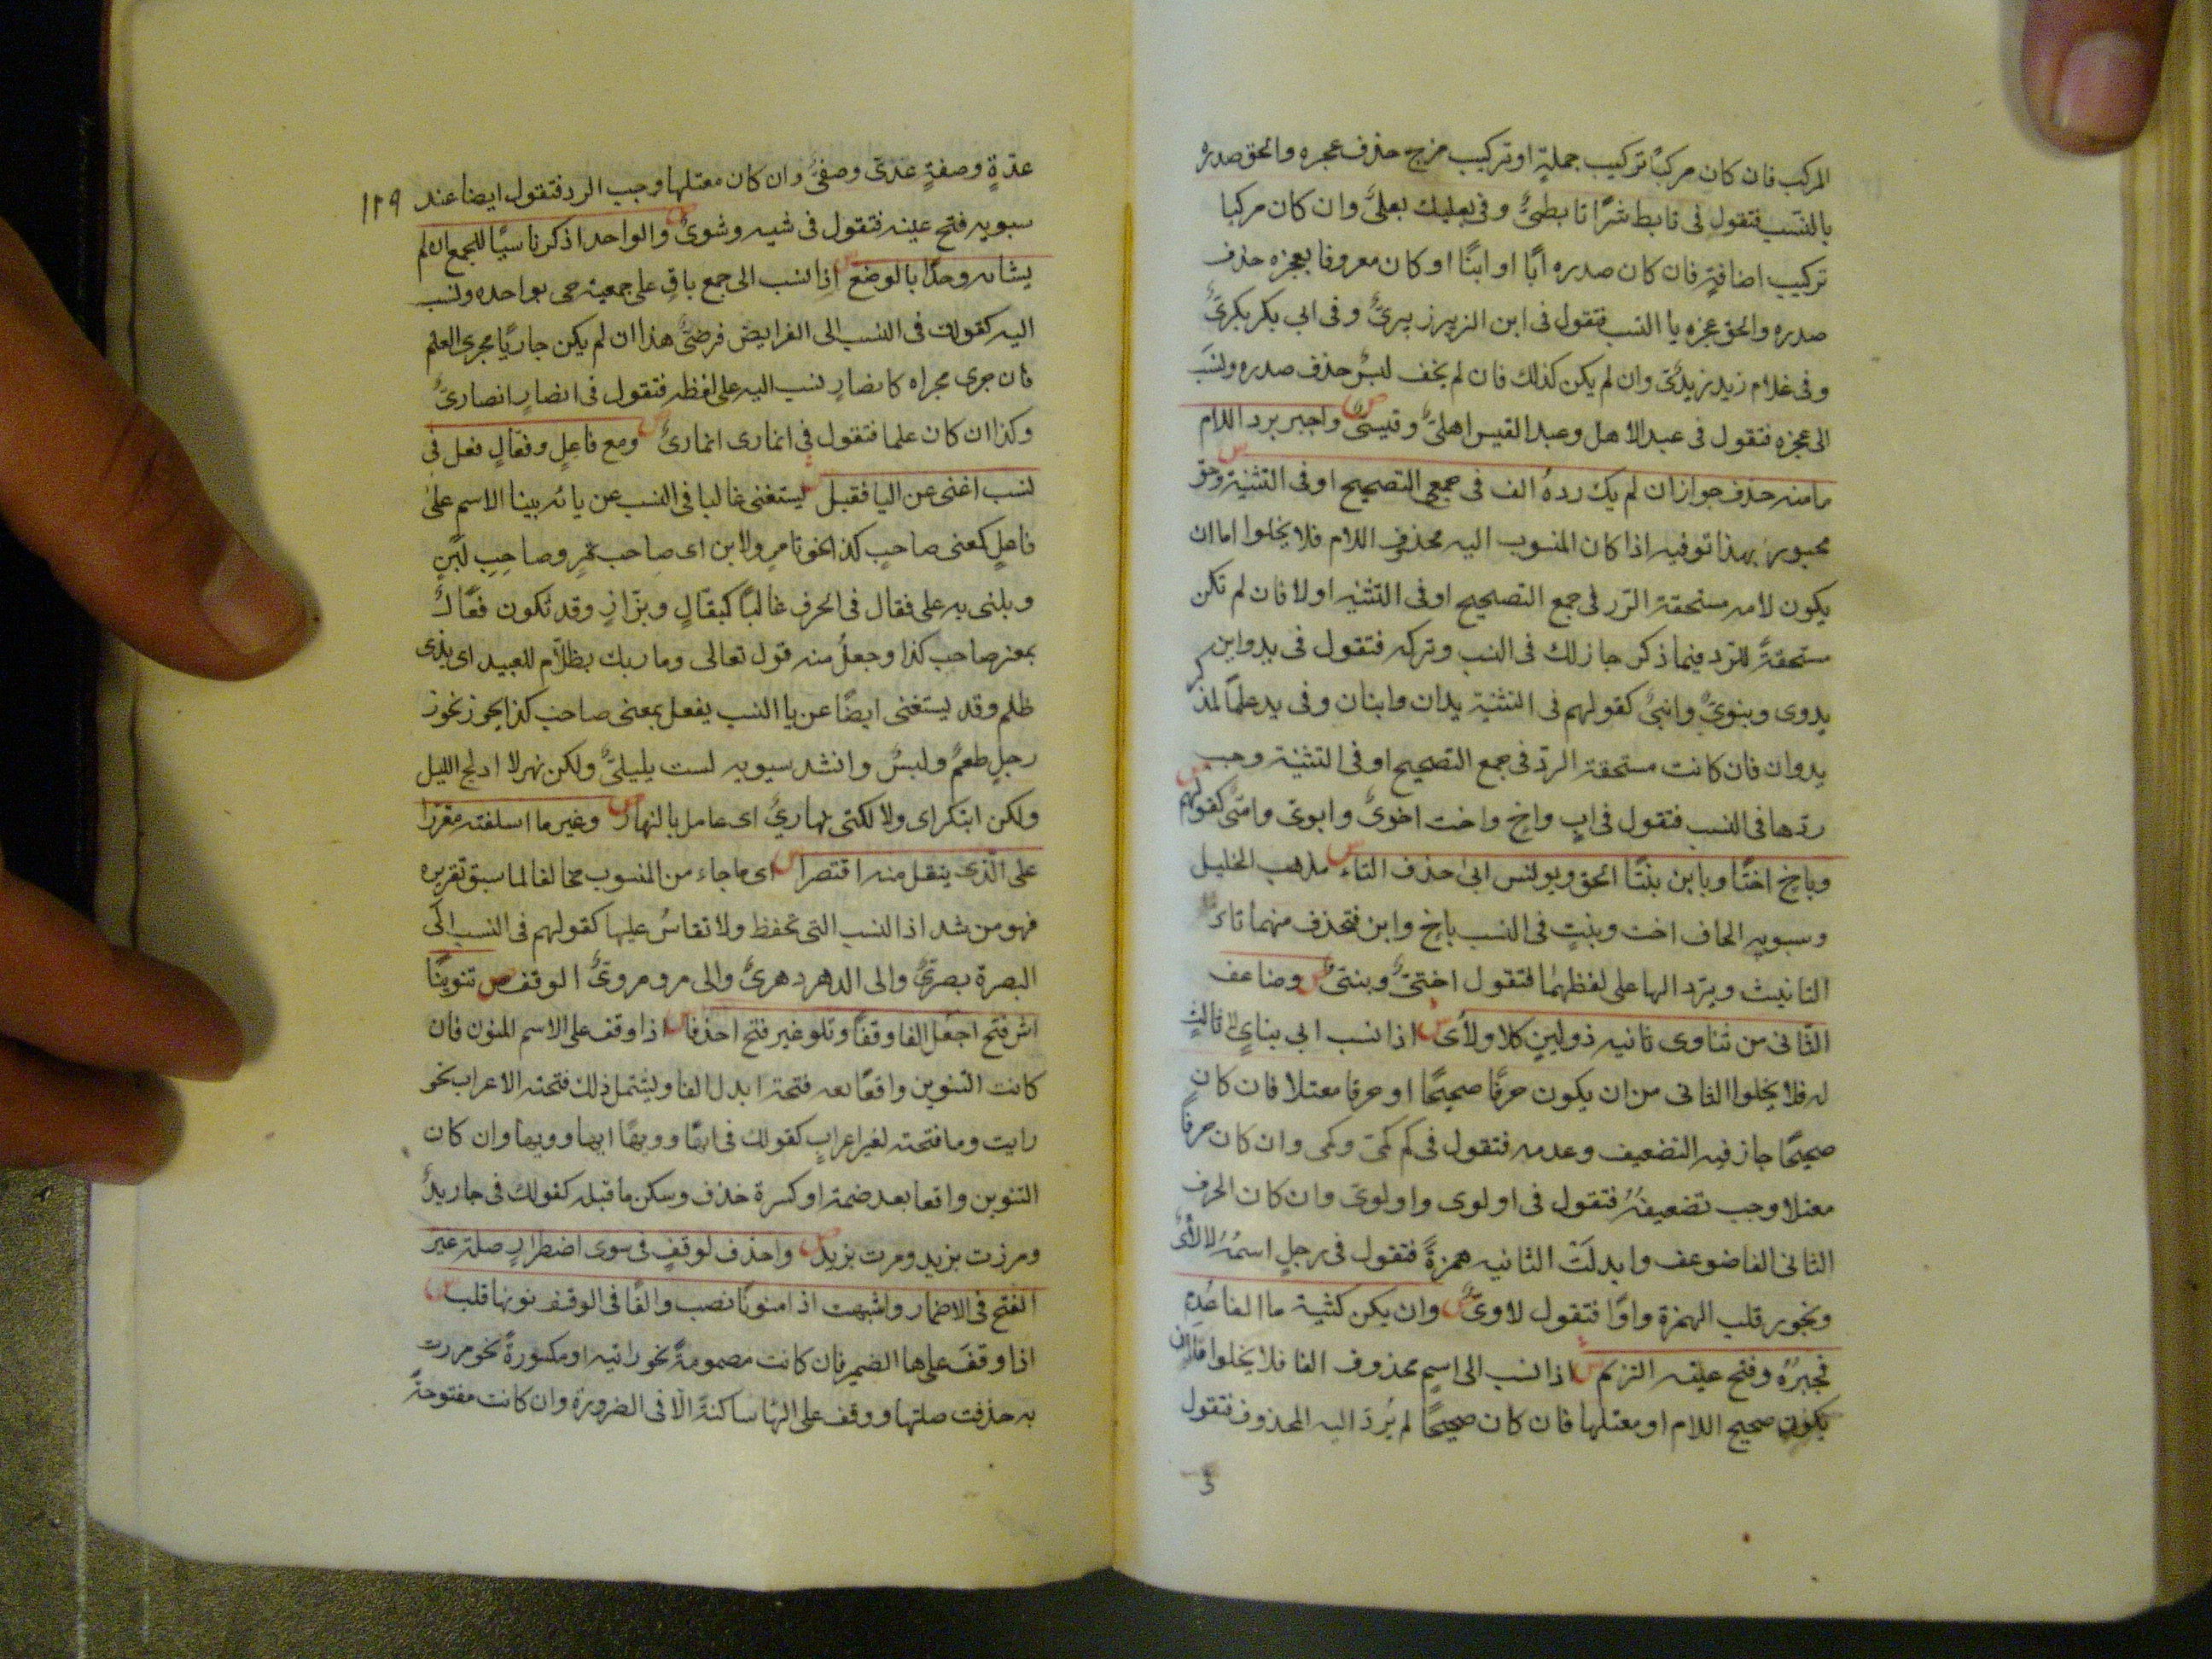 المركب فان كان مركبا تركيب جملةٍ او تركيب مزج حذف عجزه والحق صدره
بالنسب فتقول فى تابط شرًا تابطىٌّ وفى بعلبك بعلىٌّ وان كان مركبا
تركيب اضافةٍ فان كان صدره ابًا او ابنًا او كان معروفا بعجزه حذف
صدره والحق عجزه يا النسب فتقول فى ابن الزبير زبيرىٌّ وفى ابى بكر بكرىٌّ
وفى غلام زيد زيدىٌّ وان لم يكن كذلك فان لم يخف لبسٌ حذف صدره ونسب
الى عجزه فتقول فى عبد الاهل وعبد القيس اهلىٌّ وقيسىٌّ ص واجبر برد اللام
مامنه حذف جوازا ان لم يك ردهُ الف فى جمعى التصحيح او فى التثنية وحق
مجبور بهذا توفيه س اذا كان المنسوب اليه محذوف اللام فلا يخلوا اما ان
يكون لامه مستحقة الرد فى جمع التصحيح او فى التثنيه اولا فان لم تكن
مستحقةً للرّد فيما ذكر جاز لك فى النسب وتركه فتقول فى يد وابن
يدوى وبنوىٌّ وابنىٌّ كقولهم فى التثنية يدان وابنان وفى يد علمًا لمذكر
يدوان فان كانت مستحقة الردّ فى جمع التصحيح او فى التثنية وجب
ردّها فى النسب فتقول فى ابٍ واخٍ واخت اخوىٌّ وابوىّ كقولهم
وباخٍ اختًا وبابن بنتًا الحق ويونس ابى حذف التاء س مذهب الخليل
وسبويه الحاف اخت وبنتٍ فى النسب باخ وابن فتحذف منهما تاء
التانيث ويرّد الها على لفظهما فتقول اختىٌّ وبنتىٌّ ص وضاعف
الثانى من ثناوى ثانيه ذو لينٍ كلا ولاٰى س اذا نسب الى بناىٍ لا ثالث
له فلا يخلوا الثانى من ان يكون حرفًا صحيحًا او حرفا معتلا فان كان
صحيحًا جاز فيه التضعيف وعدمه فتقول فى كم كمّى وكمى وان كان حرفًا
معتلا وجب تضعيفهُ فتقول فى او لوى واو لوىّ وان كان الحرف
الثانى الفا ضوعف وابدلت الثانيه همزةً فتقول فى رجلٍ اسمهُ لا لائىٌّ
ويجوز قلب الهمزة واوًا فتقول لاوىٌّ ص وان يكن كشية ما الفا عُدِم
فجبرُهُ وفتح عليقه التزم س اذا نسب الى اسمٍ محذوف الفا فلا يخلوا اما ان
يكون صحيح اللام او معتلها فان كان صحيحًا لم يُردّ اليه المحذوف فتقول
١٢٩
عدّةٍ وصفةٍ عدىّ وصفىٌّ وان كان معتلها وجب الرد فتقول ايضا عند
سبويه فتح عينه فتقول فى شيه وشوىٌّ ص والواحد اذكر ناسبًا للجمع ان لم
يشابه وحدًا بالوضع س اذا نسب الى جمع باقٍ على جمعيته جى بواحده ونسب
اليه كقولك فى النسب الى الفرايض فرضىٌّ هذا ان لم يكن جاريًا مجرى العلم
فان جرى مجراه كانصارٍ نسب اليه على لفظه فتقول فى انصارٍ انصارىٌّ
وكذا ان كان علما فتقول فى انمارى انمارىٌّ ص ومع فاعلٍ وفعّالٍ فعل فى
نسب اغنى عن اليا فقبل س يستغنى غالبا فى النسب عن يائه ببنا الاسم على
فاعلٍ كمعنى صاحب كذا نحو تامرٍ ولابن اى صاحب تمرٍ وصاحب لبنٍ
وبلنى به على فعال فى الحرف غالبًا كبقّالٍ وبزّازٍ وقد تكون فعّالٌ
بمعنى صاحب كذا وجعلُ منه قول تعالى وما ربك بظلّام للعبيد اى بذى
ظلم وقد يستغنى ايضًا عن يا النسب بفعل بمعنى صاحب كذا نحو
رجلٍ طعمٌ ولبسٌ وانشد سيبويه لست بليلىٌّ ولكن نهر لا ادلج الليل
ولكن ابتكر اى ولا لكنى نهارىٌّ اى عامل بالنهار ص وغير ما اسلفته مقررا
على الّذى ينقل منه اقتصرا س اى ما جاء من المنسوب مخالفا لما سبق تقريره
فهو من شد اذ النسب التى تحفظ ولا تقاسُ عليها كقولهم فى النسب الى
البصرة بصرىٌّ والى الدهر دهرىٌّ والى مرو مروىٌّ الوقف ص تنوينًا
اثر فتح اجعل الفا وقفًا وتلو غير فتح احذفا س اذا وقف على الاسم المنون فان
كانت التنوين واقعًا بعد فتحة ابدل الفا ويشتمل ذلك فتحة الاعراب نحو
رايت وما فتحته لغير اعرابٍ كقولك فى ايهًا وويهًا ايها وويها وان كان
التنوين واقعا بعد ضمة او كسرة حذف وسكن ما قبله كقولك فى جا زيدٌ
ومررت بزيد ومرت بزيد ص واحذف لوقفٍ فى سوى اضطرارٍ صلة غير
الفتح فى الاضمار واشبهت اذا منونًا نصب والفًا فى الوقف نونها قلب س
اذا وقف على ها الضمير فان كانت مضمومةً نحو رايته او مكسورةً نحو مررت
به حذفت صلتها ووقف على الها ساكنةً الّا فى الضرورة وان كانت مفتوحةً